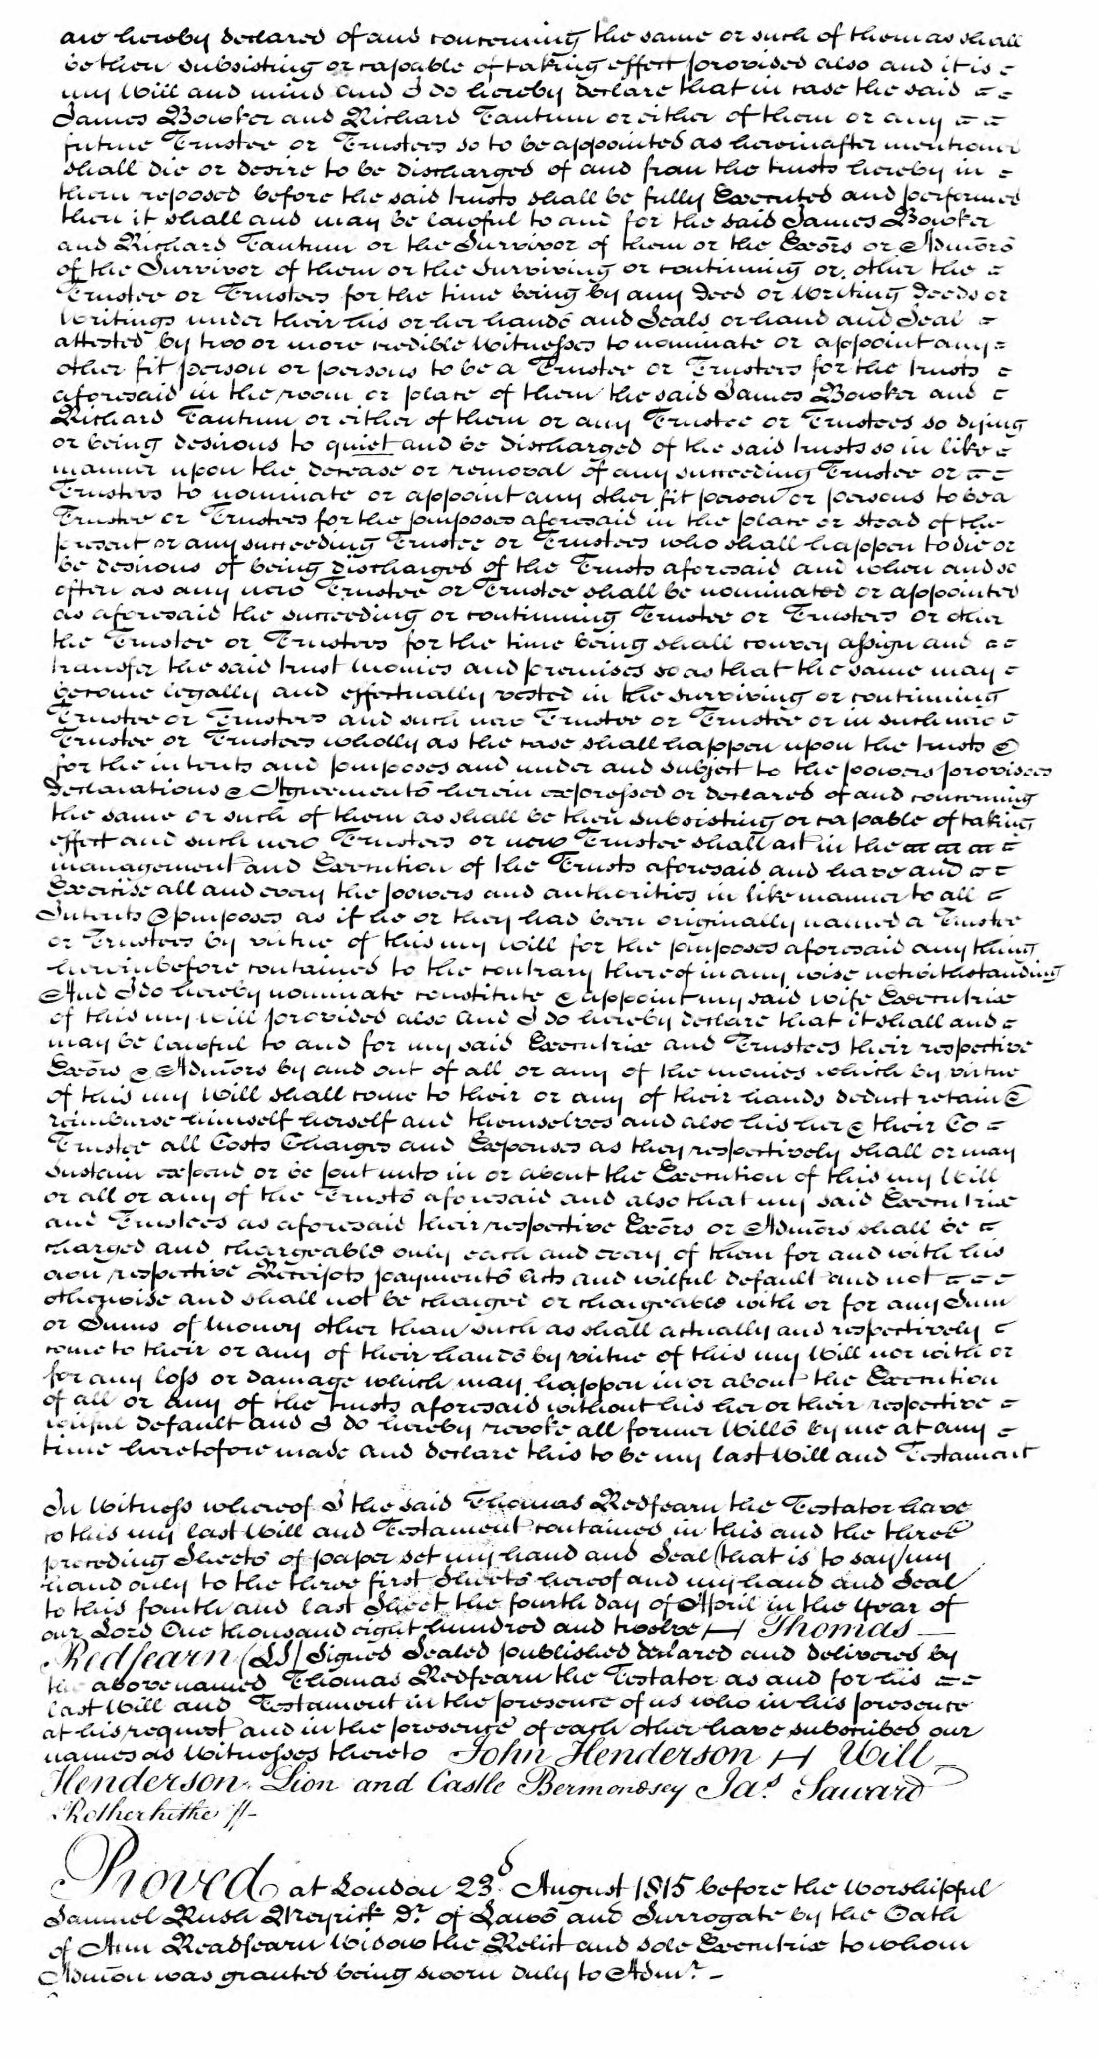 are hereby declared of and concerning the same or such of them as shall
be then subsisting or capable of taking effect provided also and it is
my Will and mind and I do hereby declare that in case the said
James Bowker and Richard Tantum or either of them or any
future Trustee or Trustees so to be appointed as hereinafter mentioned
shall die or desire to be discharged of and from the trusts hereby in
them reposed before the said trusts shall be fully Executed and performed
then it shall and may be lawful to and for the said James Bowker
and Richard Tantum or the Survivor of them or the Exōrs or Admōrs
of the Survivor of them or the surviving or continuing or other the
Trustee or Trustees for the time being by any Deed or Writing Deeds or
Writings under their his or her hands and Seals or hand and Seal
attested by two or more credible Witnesses to nominate or appoint any
other fit person or persons to be a Trustee or Trustees for the trusts
aforesaid in the room or place of them the said James Bowker and
Richard Tantum or either of them or any Trustee or Trustees so dying
or being desirous to quiet and be discharged of the said trusts so in like
manner upon the decease or removal of any succeeding Trustee or
Trustees to nominate or appoint any other fit person or persons to be a
Trustee or Trustees for the purposes aforesaid in the place or stead of the
present or any succeeding Trustee or Trustees who shall happen to die or
be desirous of being discharged of the Trusts aforesaid and when and so
often as any new Trustee or Trustee shall be nominated or appointed
as aforesaid the succeeding or continuing Trustee or Trustees or other
the Trustee or Trustees for the time being shall convey assign and
transfer the said trust Monies and premises so as that the same may
become legally and effectually vested in the surviving or continuing
Trustee or Trustees and such new Trustee or Trustee or in such new
Trustee or Trustees wholly as the case shall happen upon the trusts &
for the intents and purposes and under and subject to the powers provisoes
declarations & Agreements herein expressed or declared of and concerning
the same or such of them as shall be then subsisting or capable of taking
effect and such new Trustees or new Trustee shall act in the
management and Execution of the Trusts aforesaid and have and
Exercise all and every the powers and authorities in like manner to all
Intents & purposes as if he or they had been originally named a Trustee
or Trustees by virtue of this my Will for the purposes aforesaid any thing
hereinbefore contained to the contrary thereof in any wise notwithstanding
And I do hereby nominate constitute & appoint my said wife Executrix
of this my Will provided also and I do hereby declare that it shall and
may be lawful to and for my said Executrix and Trustees their respective
Exōrs & Admōrs by and out of all or any of the monies which by virtue
of this my Will shall come to their or any of their hands deduct retain &
reimburse himself herself and themselves and also his her & their Co
Trustee all Costs Charges and Expenses as they respectively shall or may
sustain expend or be put unto in or about the Execution of this my Will
or all or any of the Trusts aforesaid and also that my said Executrix
and Trustees as aforesaid their respective Exōrs or Admōrs shall be
charged and chargeable only each and every of them for and with his
own respective Receipts payments Acts and wilful default and not
otherwise and shall not be charged or chargeable with or for any Sum
or Sums of Money other than such as shall actually and respectively
come to their or any of their hands by virtue of this my Will nor with or
for any loss or damage which may happen in or about the Execution
of all or any of the trusts aforesaid without his her or their respective
wilful default and I do hereby revoke all former Wills by me at any
time heretofore made and declare this to be my last Will and Testament
In Witness whereof I the said Thomas Redfearn the Testator have
to this my last Will and Testament contained in this and the three
preceding Sheets of paper set my hand and Seal (that is to say) my
hand only to the three first Sheets hereof and my hand and Seal
to this fourth and last Sheet the fourth day of April in the Year of
our Lord One thousand eight hundred and twelve H Thomas
Redfearn (LS) Signed Sealed published declared and delivered by
the above named Thomas Redfearn the Testator as and for his
last Will and Testament in the presence of us who in his presence
at his request and in the presence of each other have subscribed our
names as Witnesses thereto John Henderson H Will
Henderson. Lion and Castle Bermondsey Jas. Saward
Rotherhithe //-
Proved at London 23d. August 1815 before the Worshipful
Samuel Rush Meyrick Dr. of Laws and Surrogate by the Oath
of Ann Readfearn Widow the Relict and sole Executrix to whom
Admōn was granted being sworn duly to Admr. -